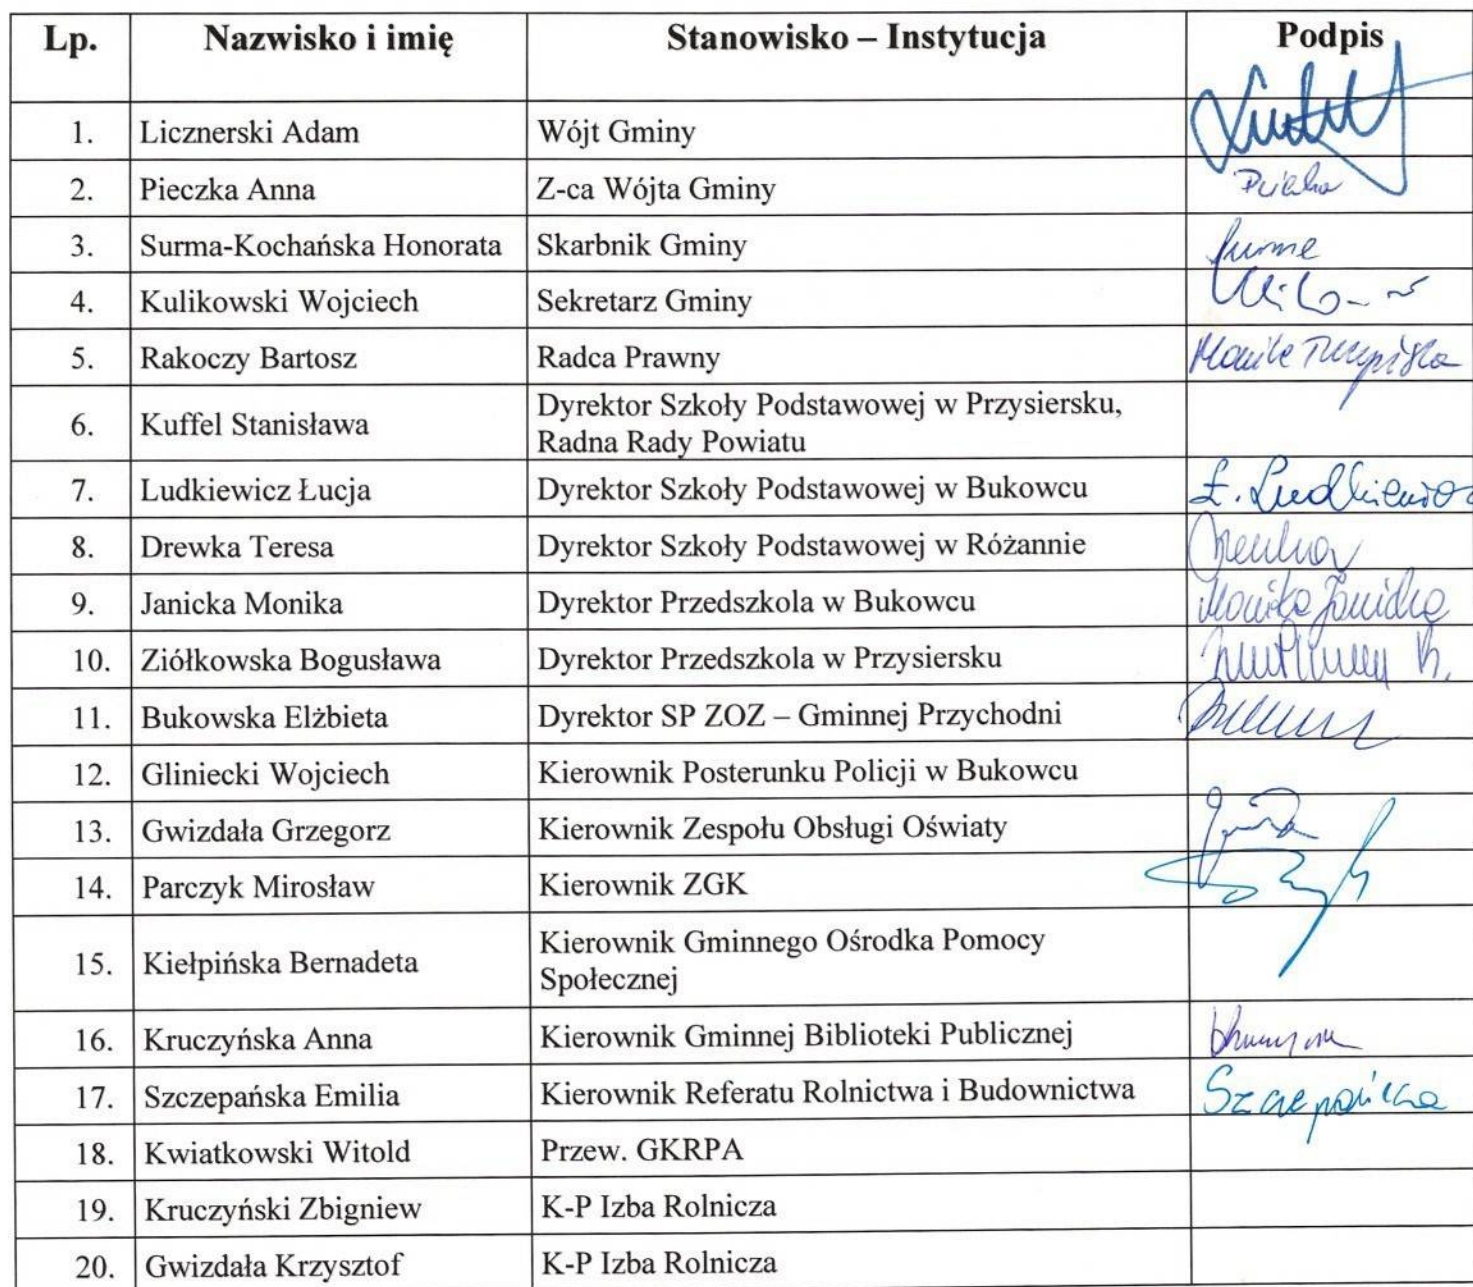 Lp. Nazwisko i imię Stanowisko – Instytucja Podpis
1. Licznerski Adam Wójt Gminy
2. Pieczka Anna Z-ca Wójta Gminy
3. Surma-Kochańska Honorata Skarbnik Gminy
4. Kulikowski Wojciech Sekretarz Gminy
5. Rakoczy Bartosz Radca Prawny
6. Kuffel Stanisława Dyrektor Szkoły Podstawowej w Przysiersku,
Radna Rady Powiatu
7. Ludkiewicz Łucja Dyrektor Szkoły Podstawowej w Bukowcu Ł. Ludkiewicz
8. Drewka Teresa Dyrektor Szkoły Podstawowej w Różannie
9. Janicka Monika Dyrektor Przedszkola w Bukowcu Monika Janicka
10. Ziółkowska Bogusława Dyrektor Przedszkola w Przysiersku
11. Bukowska Elżbieta Dyrektor SP ZOZ – Gminnej Przychodni
12. Gliniecki Wojciech Kierownik Posterunku Policji w Bukowcu
13. Gwizdała Grzegorz Kierownik Zespołu Obsługi Oświaty
14. Parczyk Mirosław Kierownik ZGK
15. Kiełpińska Bernadeta Kierownik Gminnego Ośrodka Pomocy
Społecznej
16. Kruczyńska Anna Kierownik Gminnej Biblioteki Publicznej
17. Szczepańska Emilia Kierownik Referatu Rolnictwa i Budownictwa Szczepańska
18. Kwiatkowski Witold Przew. GKRPA
19. Kruczyński Zbigniew K-P Izba Rolnicza
20. Gwizdała Krzysztof K-P Izba Rolnicza